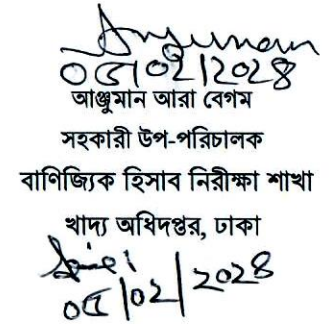 Anjuman
০৫/০২/২০২৪
আঞ্জুমান আরা বেগম
সহকারী উপ-পরিচালক
বাণিজ্যিক হিসাব নিরীক্ষা শাখা
খাদ্য অধিদপ্তর, ঢাকা
০৫/০২/২০২৪